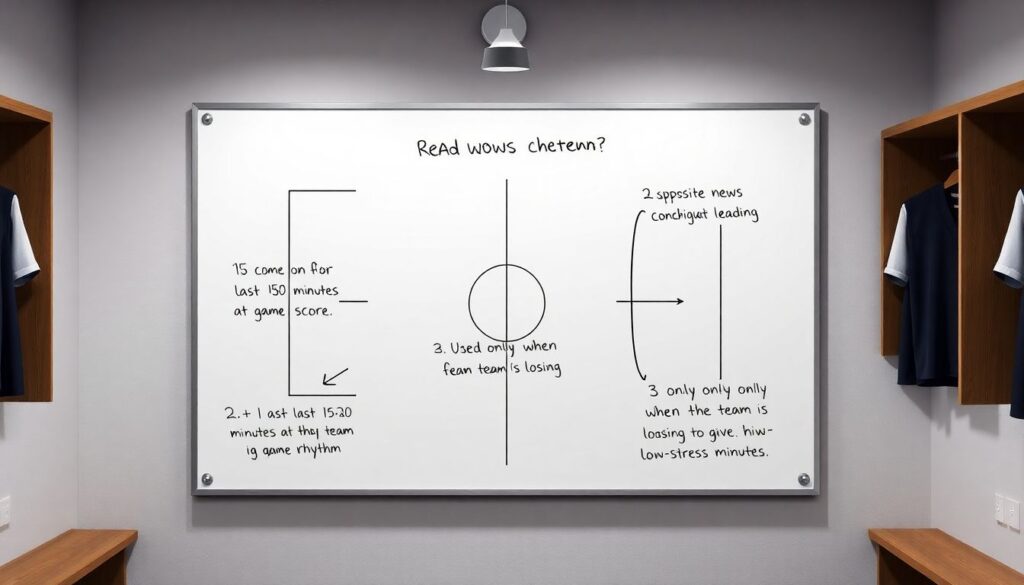 ReAd wows chetewn?
15 come on for
last 150 minutes
at game score.
2. + 1 ast last 15-20
minutes at thę team
ig game rhythm
3. Used only when
fean team is losing
2 sppssite news
conchigut leading
3 only only onlly
when the team is
loasing to give. hiw-
low-stress minutes.